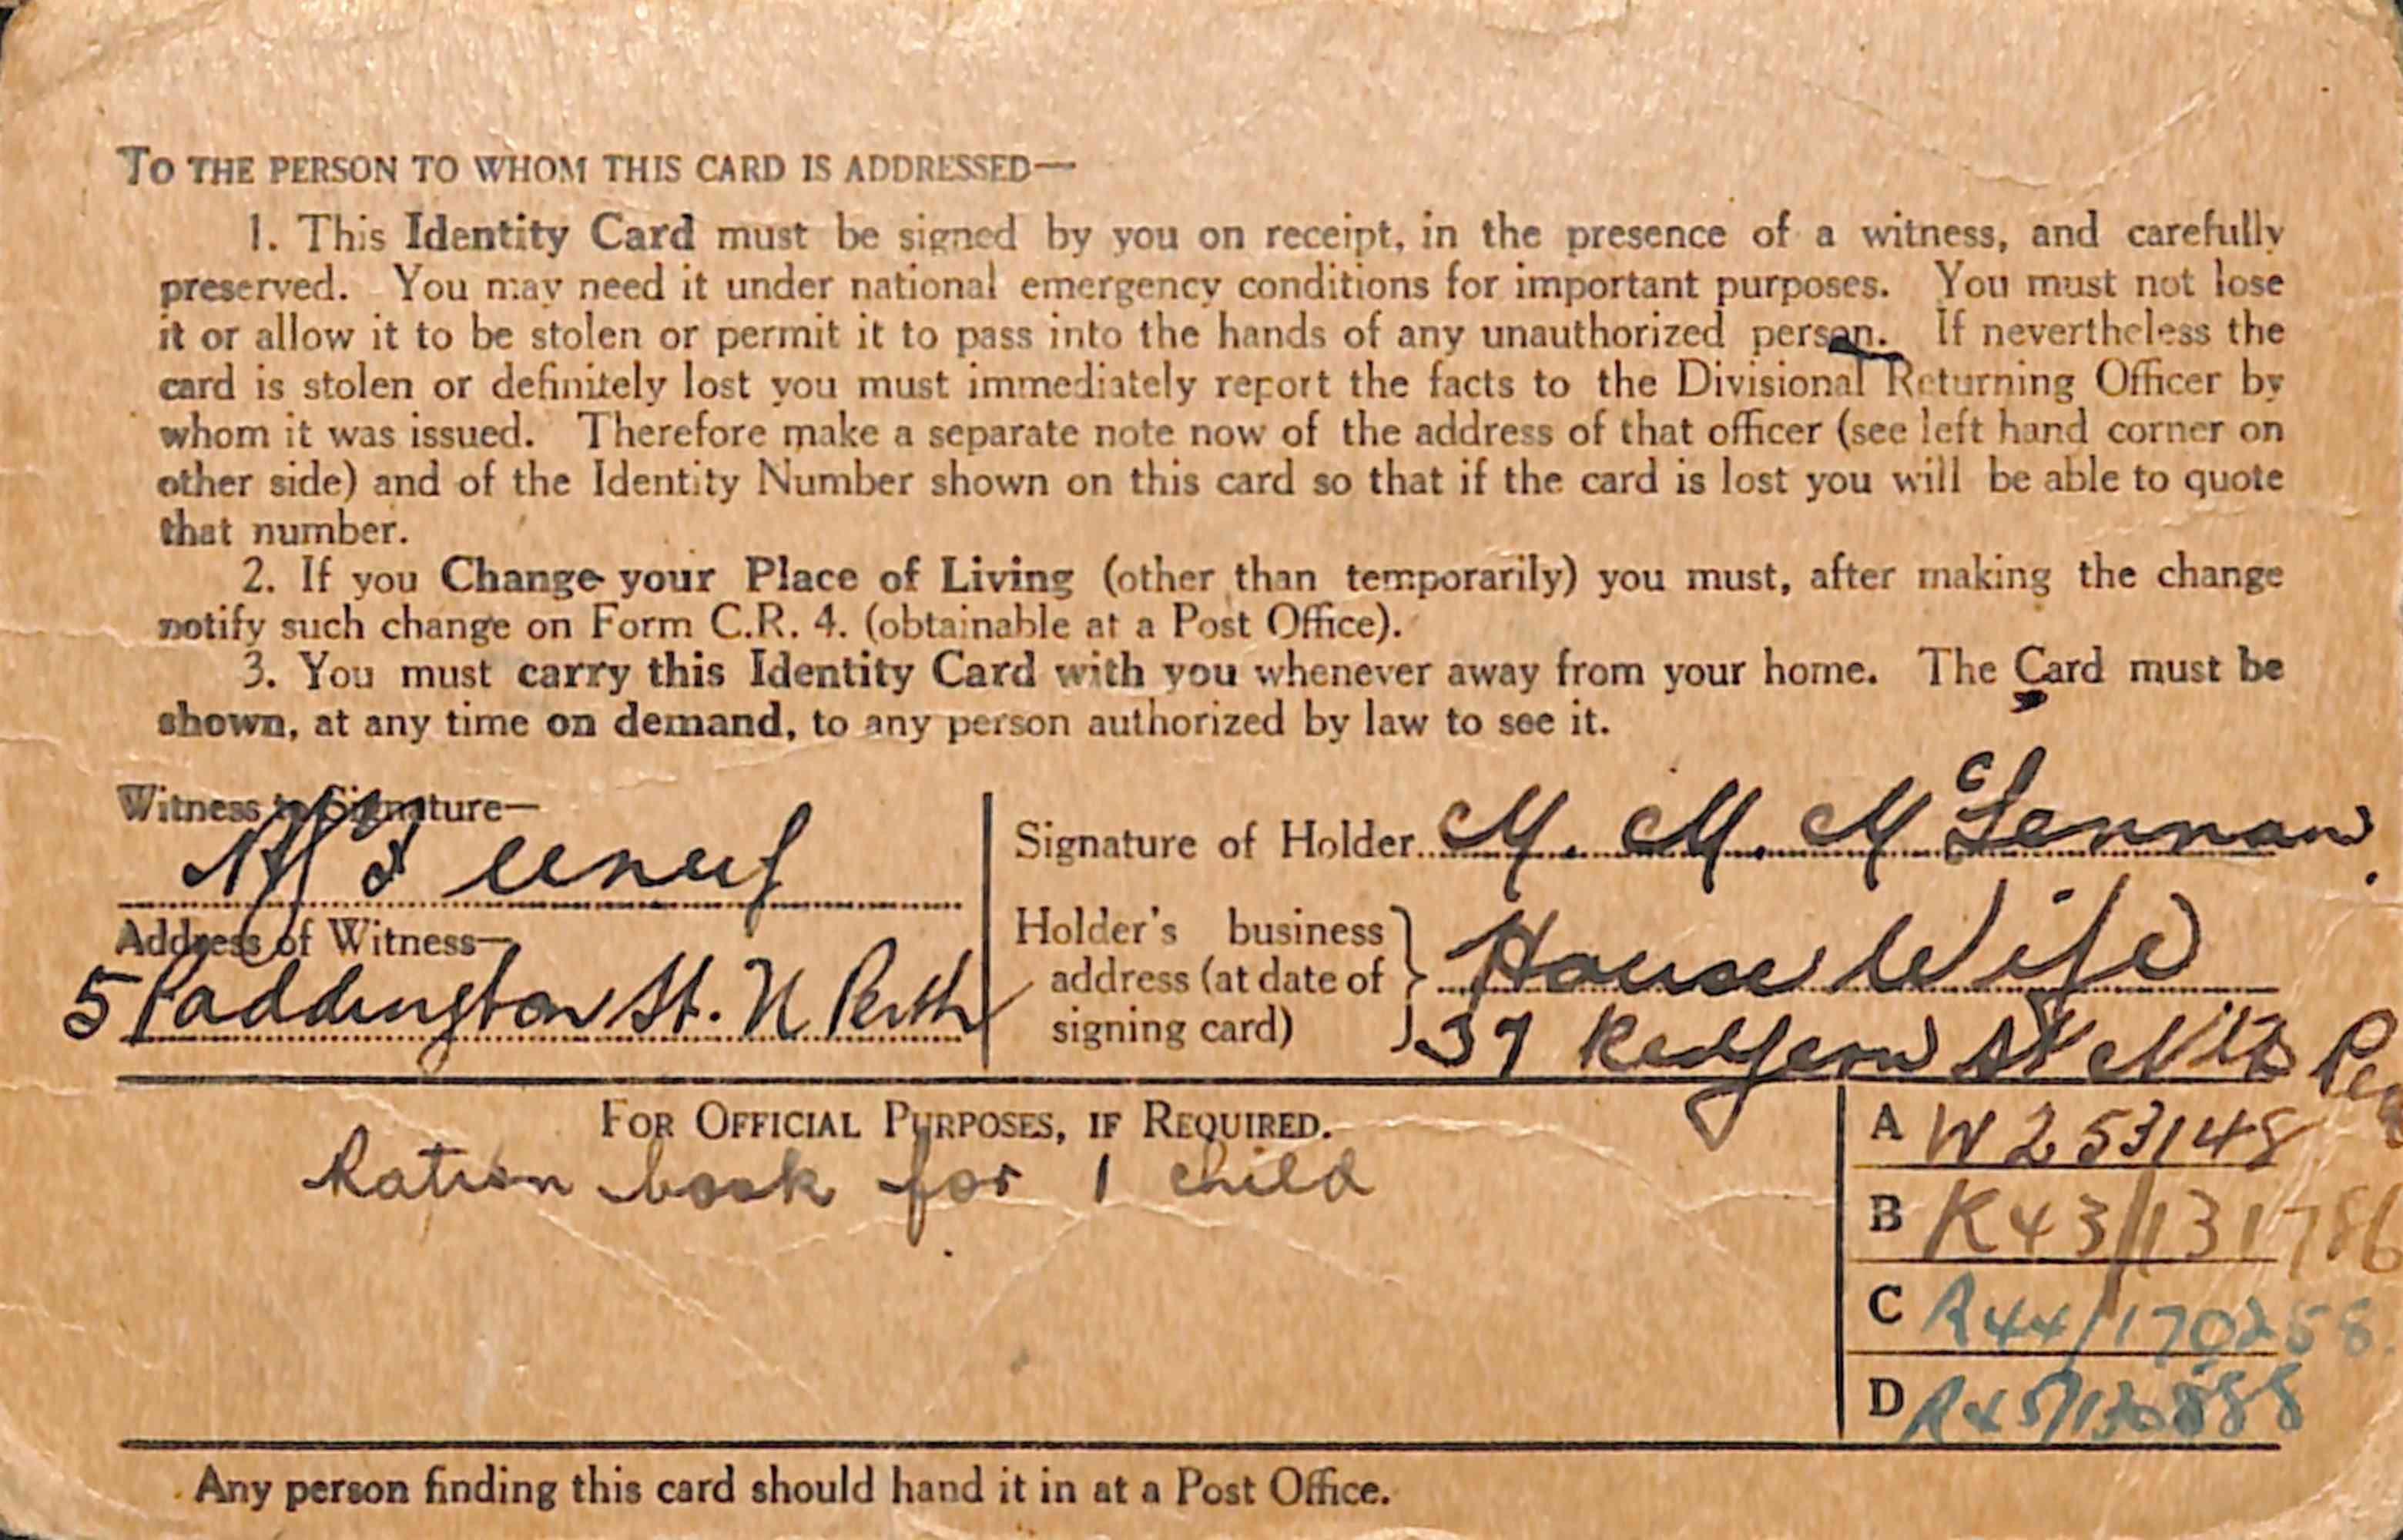 TO THE PERSON TO WHOM THIS CARD IS ADDRESSED—
1. This Identity Card must be signed by you on receipt, in the presence of a witness, and carefully
preserved. You may need it under national emergency conditions for important purposes. You must not lose
it or allow it to be stolen or permit it to pass into the hands of any unauthorized person. If nevertheless the
card is stolen or definitely lost you must immediately report the facts to the Divisional Returning Officer by
whom it was issued. Therefore make a separate note now of the address of that officer (see left hand corner on
other side) and of the Identity Number shown on this card so that if the card is lost you will be able to quote
that number.
2. If you Change your Place of Living (other than temporarily) you must, after making the change
notify such change on Form C.R. 4. (obtainable at a Post Office).
3. You must carry this Identity Card with you whenever away from your home. The Card must be
shown, at any time on demand, to any person authorized by law to see it.
Witness to Signature—
Address of Witness—
5 Paddington St. N Perth
Signature of Holder M. M. McLennan.
Holder's business
address (at date of
signing card)
House Wife
37 Redfern St Nth
FOR OFFICIAL PURPOSES, IF REQUIRED.
Ration book for 1 child
A W253148
B K43/131786
C R44/170258
D
Any person finding this card should hand it in at a Post Office.